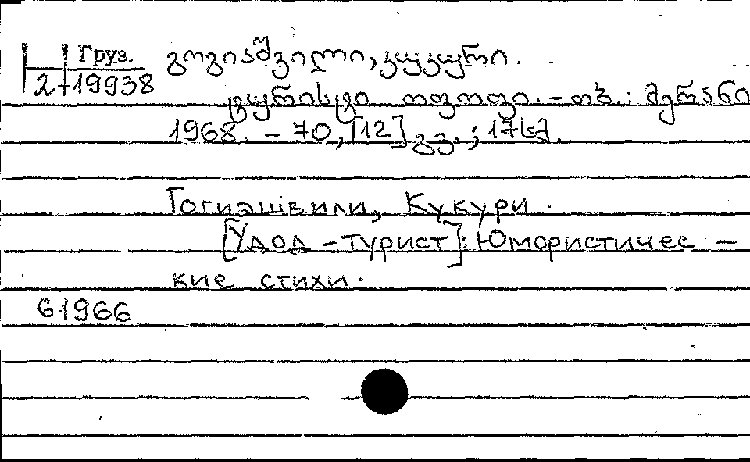 Груз.
2-19938
გოგიაშვილი, კუკური.
ტურისტი ოფოფი. - თბ.: მერანი
1968. - 70, [12] გვ.; 17სმ.
Гогиашвили, Кукури.
[Удод - турист]: Юмористичес -
кие стихи.
61966